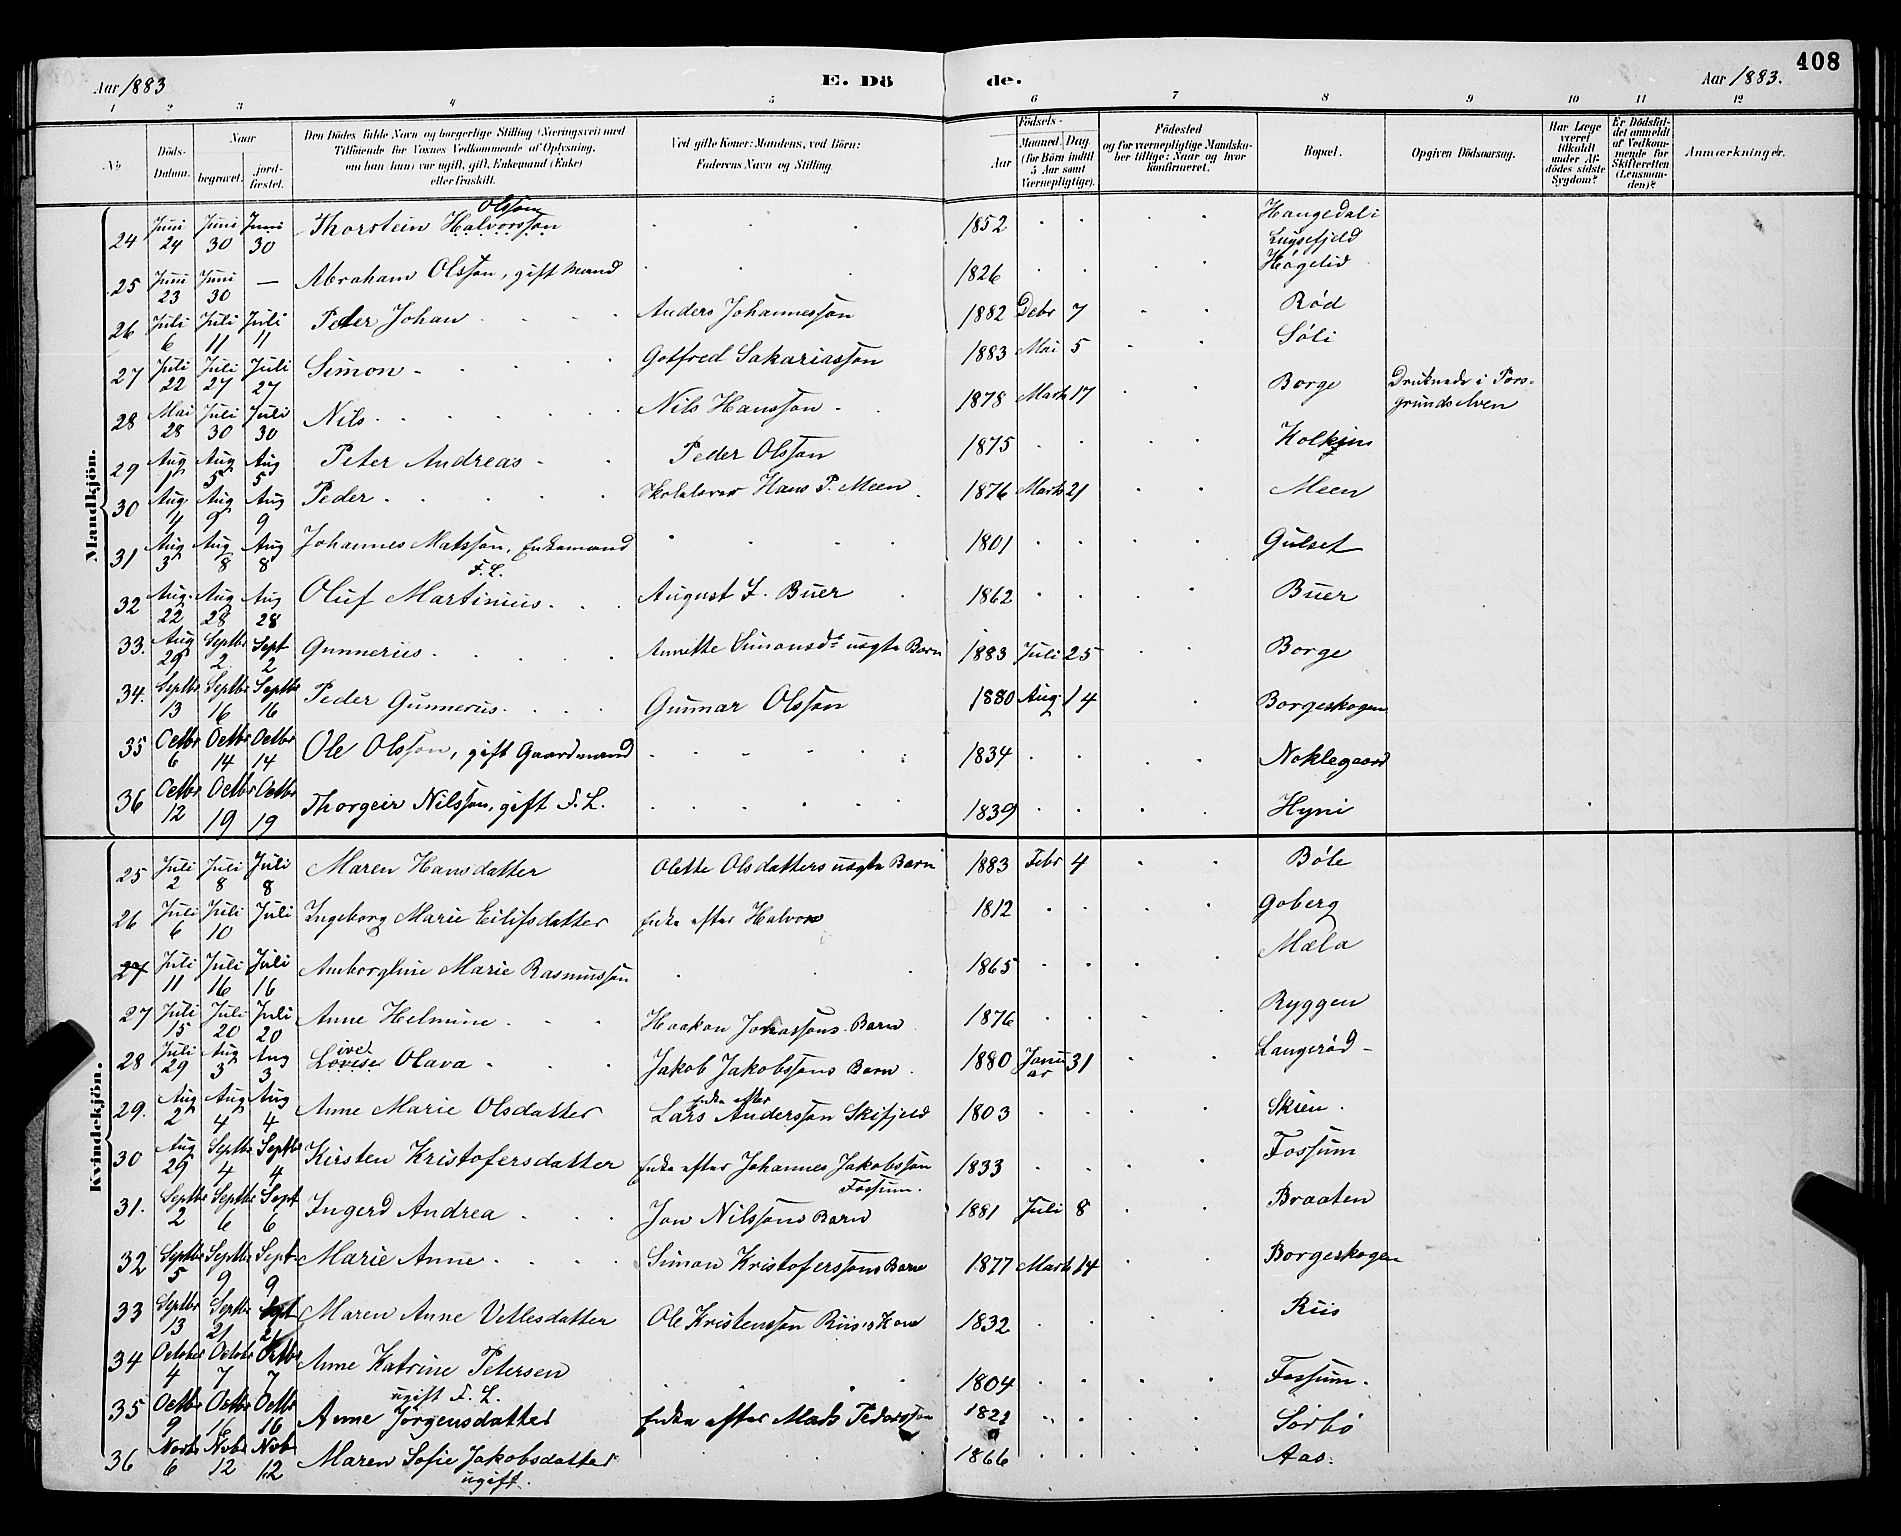 408
Aar 1883 E. Dö de. Aar 1883.
1 2 3 4 5 6 7 8 9 10 11 12
No Döds-Datum. Naar begravet. jordfæstet. Den Dödes fulde Navn og borgerlige Stilling (Næringsvei) med Tilföiende for Voxnes Vedkommende af Oplysning, om han (hun) var ugift, gift, Enkemand (Enke) eller fraskilt. Ved gifte Koner: Mandens, ved Börn: Faderens Navn og Stilling. Födsels- Aar Maaned Dag (for Börn indtil 5 Aar samt Værnepligtige). Födested og for værnepligtige Mandskaber tillige: Naar og hvor konfirmeret. Bopæl. Opgiven Dödsaarsag. Har Læge været tilkaldt under Afdödes sidste Sygdom? Er Dödsfaldet anmeldt af Vedkommende for Skifteretten (Lensmanden)? Anmærkninger.
Mandkjön.
24 Juni 24 Juni 30 Juni 30 Thorstein Halvorsson Olsson 1852 Luysefjeld
25 Juni 23 Juni 30 — Abraham Olsson, gift Mand 1826 Høgelid
26 Juli 6 Juli 11 Juli 11 Peder Johan Anders Johannesson 1882 Debr 7 Rød
27 Juli 22 Juli 27 Juli 27 Simon Gotfred Sakariasson 1883 Mai 5 Søli
28 Mai 28 Juli 30 Juli 30 Nils Nils Hansson 1878 Marts 17 Borge Druknede i Porsgrundselven
29 Aug 1 Aug 5 Aug 5 Peter Andreas Peder Olsson 1875
30 Aug 4 Aug 9 Aug 9 Peder Skolelærer Hans P. Meen 1876 Marts 21 Meen
31 Aug 3 Aug 8 Aug 8 Johannes Matsson, Enkemand F. L. 1801 Gulset
32 Aug. 22 Aug 28 Aug 28 Oluf Martinius August L. Buer 1862 Buer
33. Aug 29 Septbr 2 Sept 2 Gunnerius Annette Simonsdr uægte Barn 1883 Juli 25 Borge
34. Septbr 13 Septbr 16 Septbr 16 Peder Gunnerus Gunnar Olsson 1880 Aug. 14 Borgeskogen
35 Octbr 6 Octbr 14 Octbr 14 Ole Olsson, gift Gaardmand 1834 Noklegaard
36 Octbr 12 Octbr 19 Octbr 19 Thorgeir Nilsson, gift F. L. 1839 Hyni
Kvindekjön.
25 Juli 2 Juli 8 Juli 8 Maren Hansdatter Olette Olsdatters uægte Barn 1883 Febr 4 Bøle
26 Juli 6 Juli 10 Juli Ingeborg Marie Eilifsdatter Enke efter Halvor 1812 Goberg
27 Juli 11 Juli 16 Juli 16 Amborgline Marie Rasmusson 1865 Mæla
27 Juli 15 Juli 20 Juli 20 Anne Helmine Haakon Jonassons Barn 1876 Ryggen
28 Juli 29 Aug 3 Aug 3 Lovise Olava Jakob Jakobssons Barn 1880 Januar 31 Langerød
29. Aug 2 Aug 4 Aug 4 Anne Marie Olsdatter Enke efter Lars Andersson Skifjeld 1803 Skien.
30 Aug 29 Septbr 4 Septbr 4 Kirsten Kristofersdatter Enke efter Johannes Jakobsson Fossum. 1833 Fossum
31. Septbr 2 Septbr 6 Sept 6 Ingerd Andrea Jon Nilssons Barn 1881 Juli 8 Braaten
32 Septbr 5 Septbr 9 Sept 9 Marie Anne Simon Kristoferssons Barn 1877 Marts 14 Borgeskogen
33 Septbr 13 Septbr 21 Sept 21 Maren Anne Vetlesdatter Ole Kristensson Riis's Kone 1832 Riis
34 October 4 Octobr 7 Octbr 7 Anne Katrine Petersen ugift F. L. 1804 Fossum.
35 Octbr 9 Octbr 16 Octbr 16 Anne Jørgensdatter Enke efter Mads Pedersson Sørbø
36 Novbr 6 Novbr 12 Novbr 12 Maren Sofie Jakobsdatter ugift. 1866 Aas.